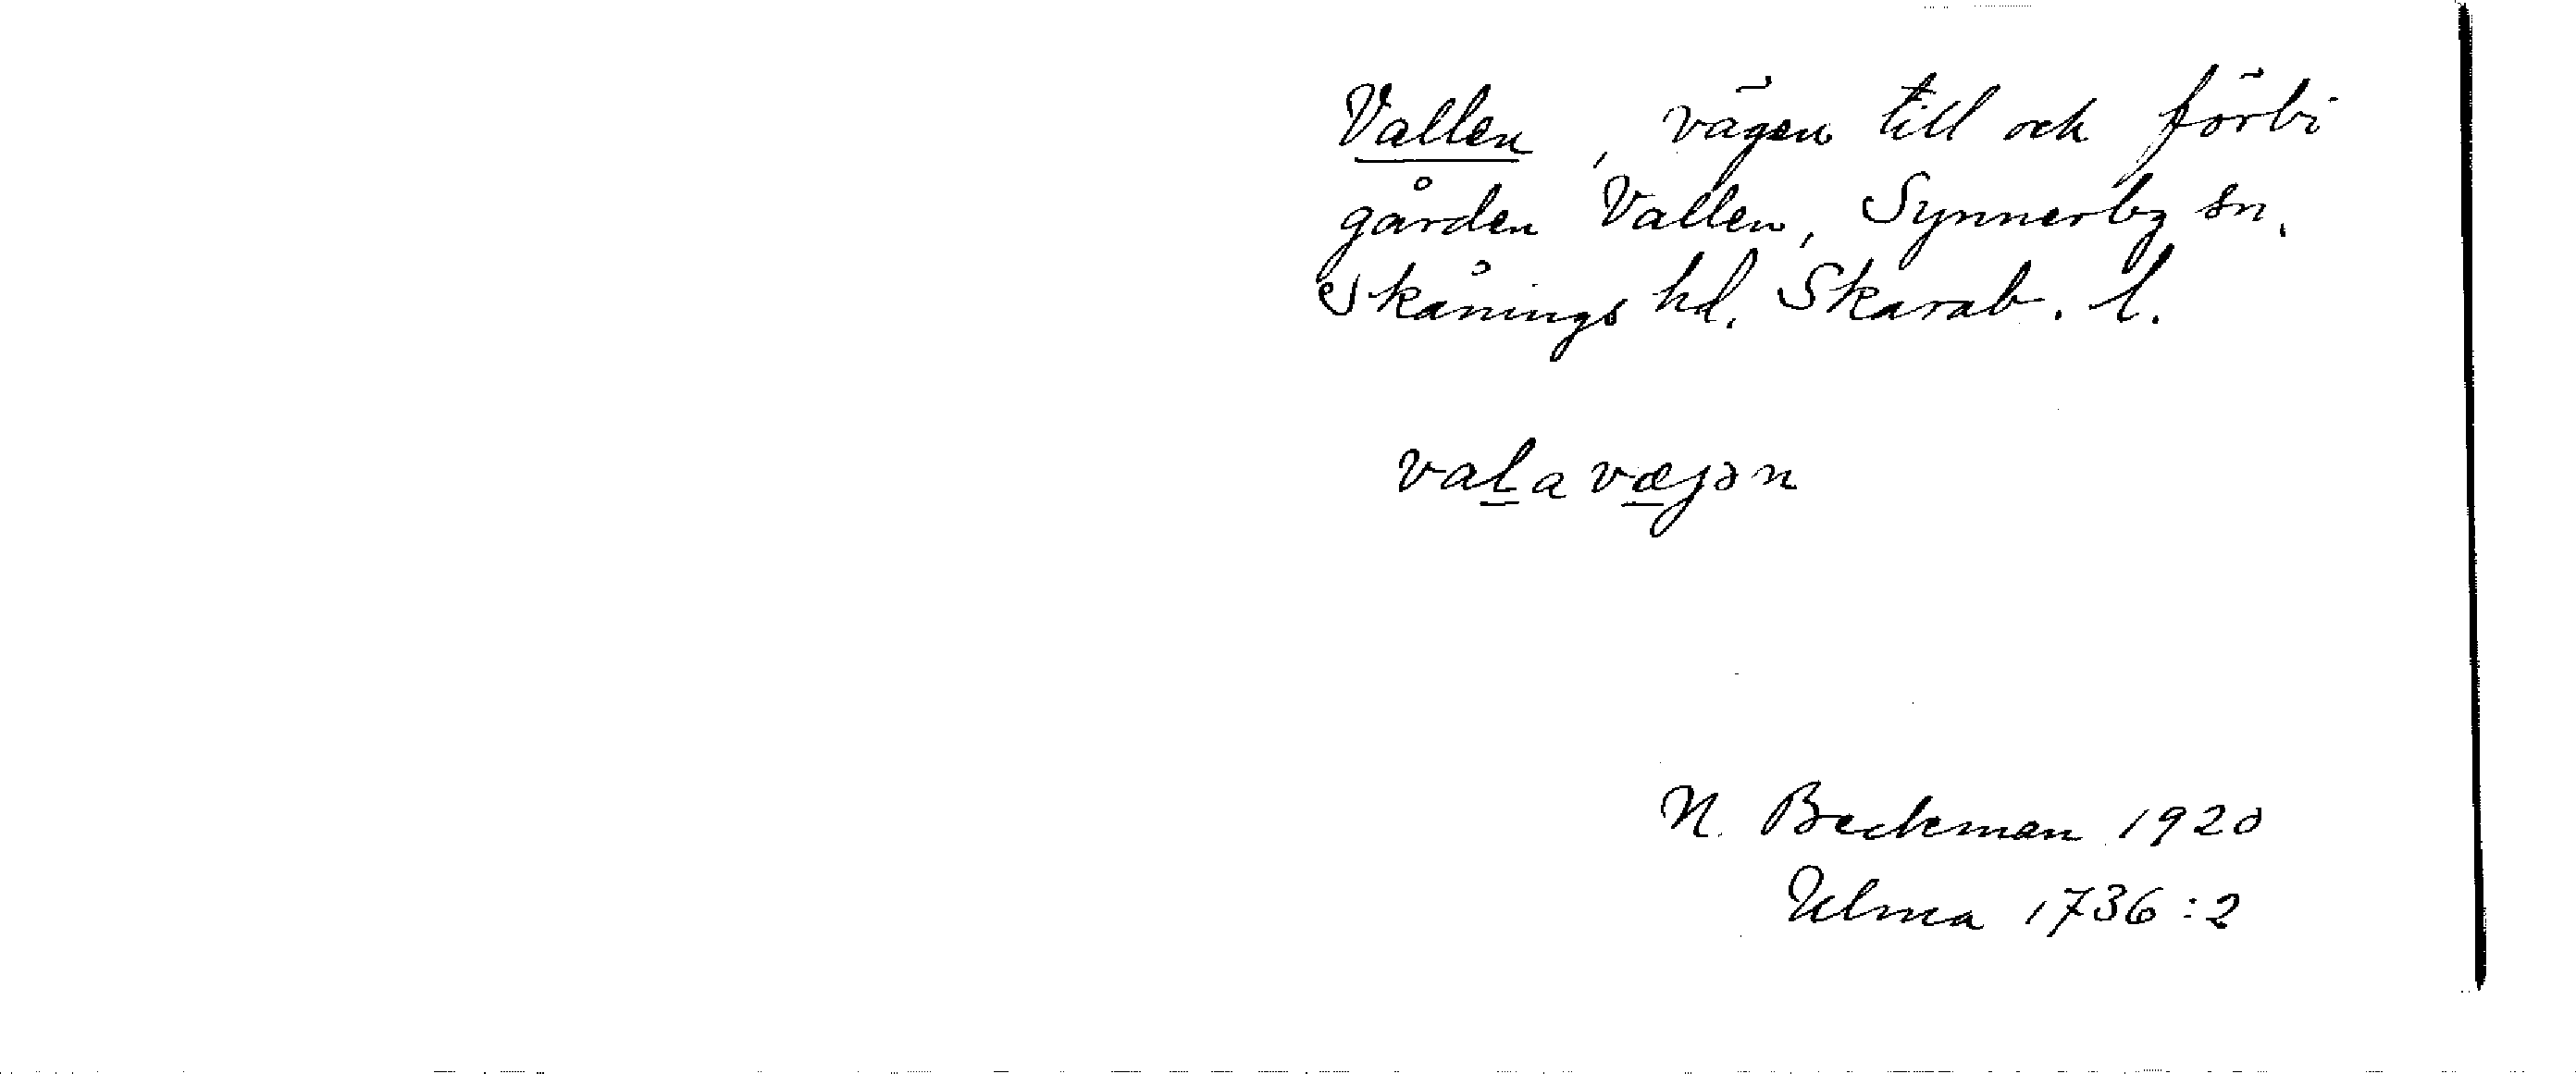 Vallen, vägen till och förbi
gården Vallen, Synnerby sn.
Skånings hd. Skarab. l.
valavæjən
N. Beckman 1920
Ulma 1736:2